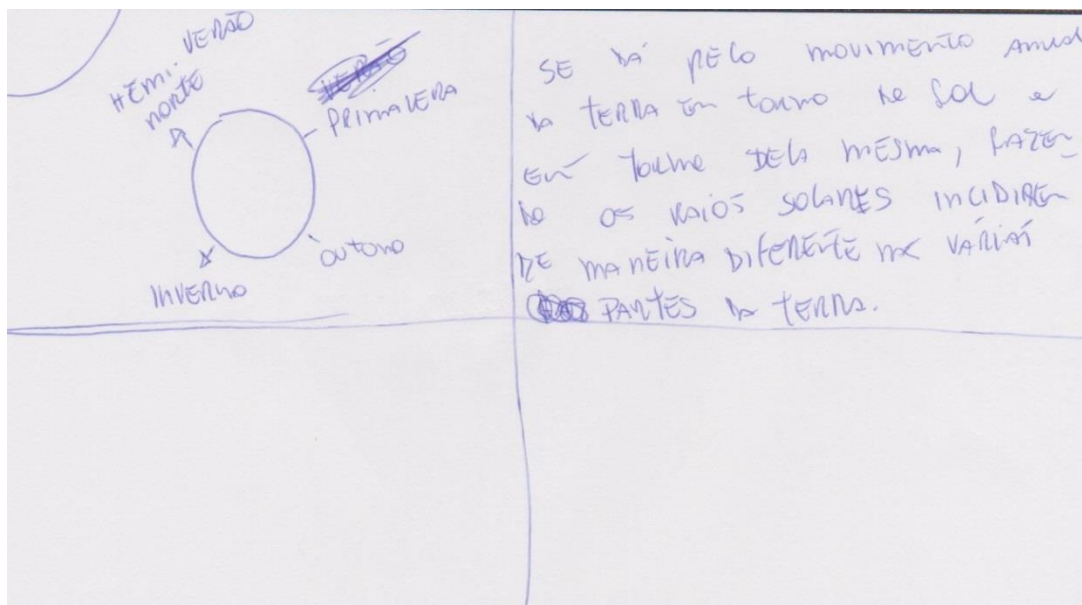 HEMI. VERÃO
NORTE
PRIMAVERA
OUTONO
INVERNO
SE DÁ PELO MOVIMENTO ANUAL
DA TERRA EM TORNO DO SOL e
EM TORNO DELA MESMA, FAZEN-
DO OS RAIOS SOLARES INCIDIREM
DE MANEIRA DIFERENTE NAS VÁRIAS
PARTES DA TERRA.